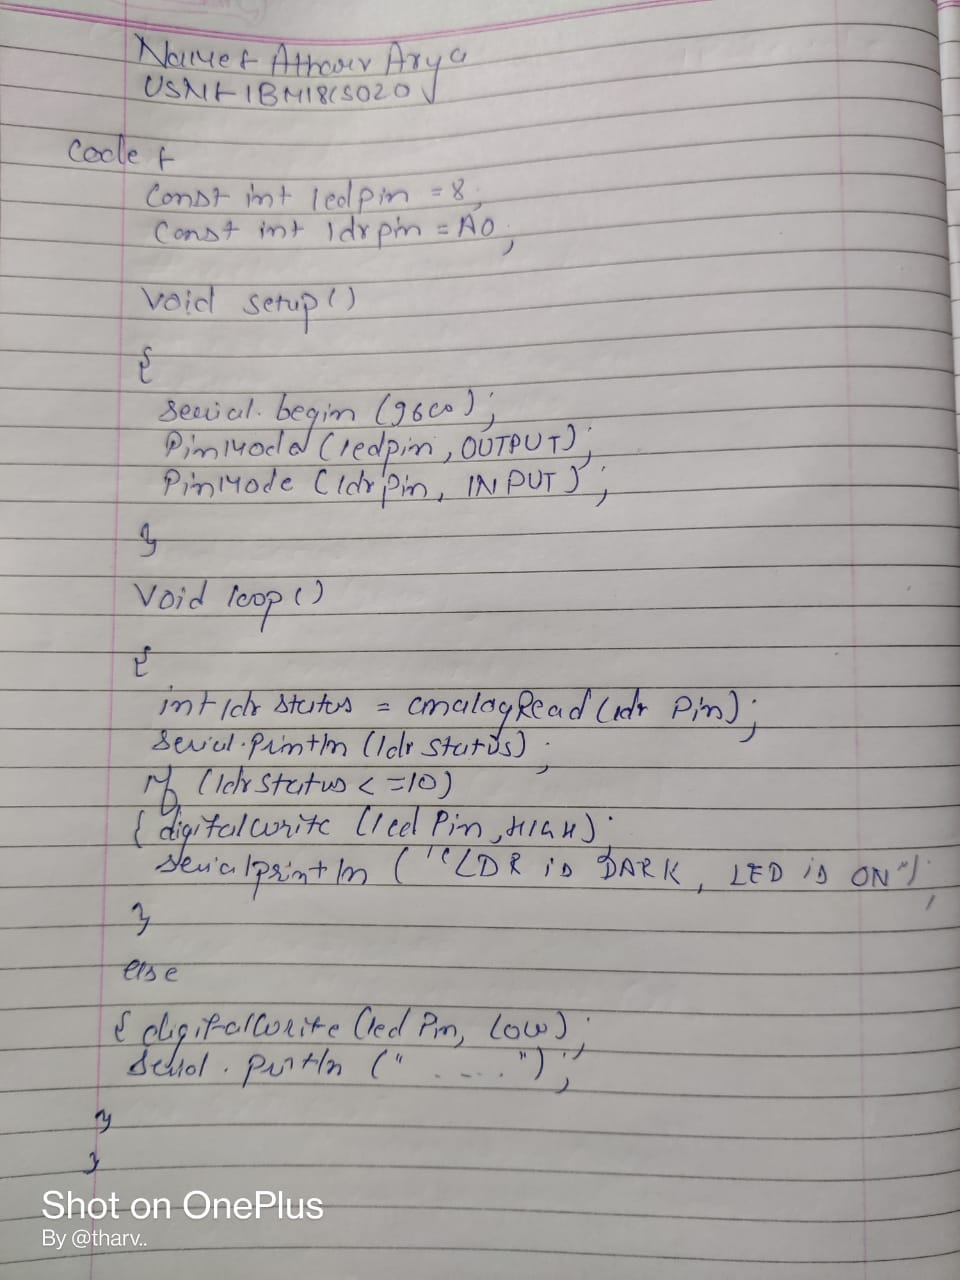 Name: Atharv Arya
USN: 1BM18CS020
Code:
Const int ledpin = 8;
Const int ldrpin = A0;
Void setup()
{
Serial.begin (9600);
PinMode (ledpin, OUTPUT);
PinMode (ldrpin, INPUT);
}
Void loop()
{
int ldr status = analogRead (ldr Pin);
Serial.Println (ldr status);
if (ldr status <=10)
{ digitalWrite (led Pin, HIGH);
Serialprintln ("LDR is DARK, LED is ON");
}
else
{ digitalWrite (led Pin, LOW);
Serial.println ("....");
}
}
Shot on OnePlus
By @tharv..